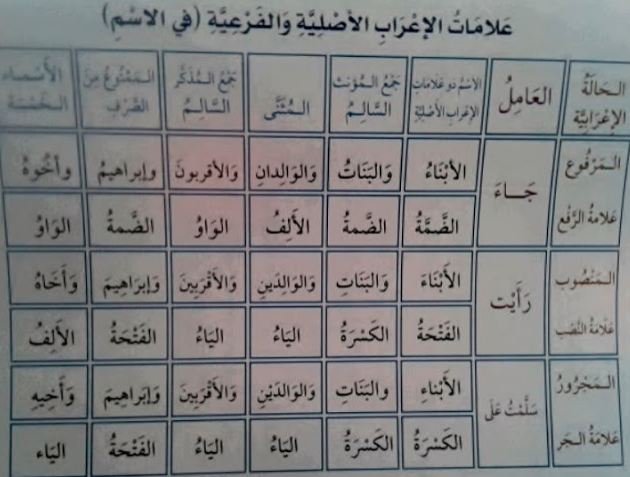 عَلَامَاتُ الإِعْرَابِ الأَصْلِيَّةِ وَالفَرْعِيَّةِ (في الاسْمِ)
الـحَالَةُ الإِعْرَابِيَّةِ العَامِلُ الاسْمُ ذو عَلَامَاتِ الإعرابِ الأَصْلِيَّةِ جَمْعُ الـمُؤَنَّثِ السَّالِـمُ الـمُثَنَّى جَمْعُ الـمُذَكَّرِ السَّالِـمُ الـمَمْنُوعُ مِنَ الصَّرْفِ الأَسْمَاء الـخَمْسَة
الـمَرْفُوع جَـاءَ الأَبْنَاءُ وَالبَنَاتُ وَالوَالِدانِ وَالأَقربونَ وإبراهيمُ وأَخُوهُ
عَلامَةُ الرَّفْع الضَّمَّةُ الضَّمةُ الأَلِفُ الوَاوُ الضَّمةُ الوَاوُ
الـمَنْصُوب رَأَيْت الأَبْنَاءَ وَالبَنَاتِ وَالوَالِدَينِ وَالأَقْرَبِينَ وَإِبْرَاهِيمَ وَأَخَاهُ
عَلَامَةُ النَّصْب الفَتْحَةُ الكَسْرَةُ اليَاءُ اليَاءُ الفَتْحَةُ الأَلِفُ
الـمَجْرُورُ سَلَّمْتُ عَلَى الأَبْناءِ والبَنَاتِ وَالوَالِدَيْنِ وَالأَقْرَبِينَ وَإِبْراهيمَ وَأَخِيهِ
عَلَامَةُ الـجَر الكَسْرَةُ الكَسْرَةُ اليَاءُ اليَاءُ الفَتْحَةُ اليَاء